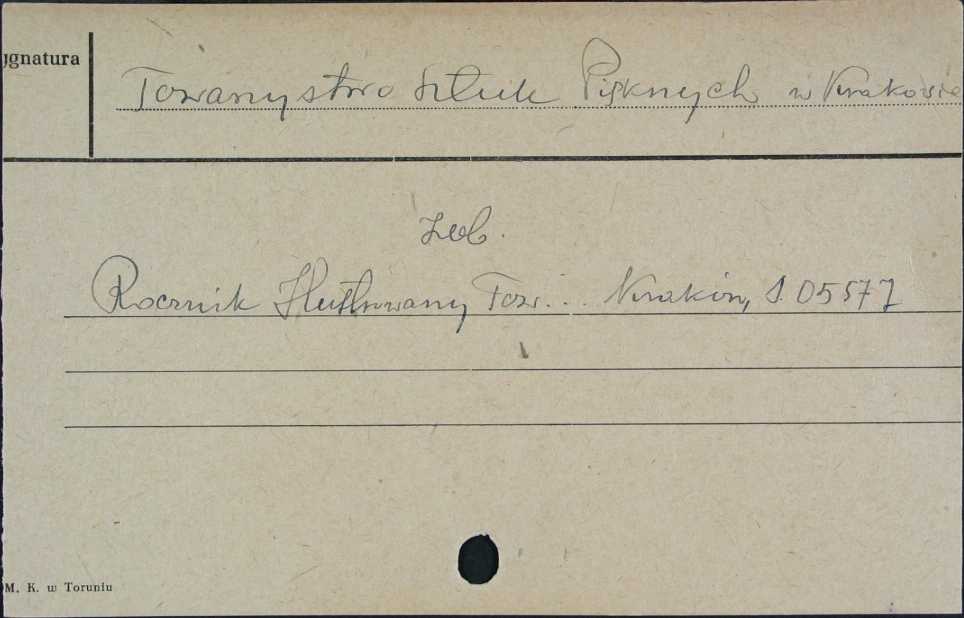 ygnatura
Towarzystwo Sztuk Pięknych w Krakowie
zob.
Rocznik Illustrowany Tow... Kraków, S. 05577
M. K. w Toruniu